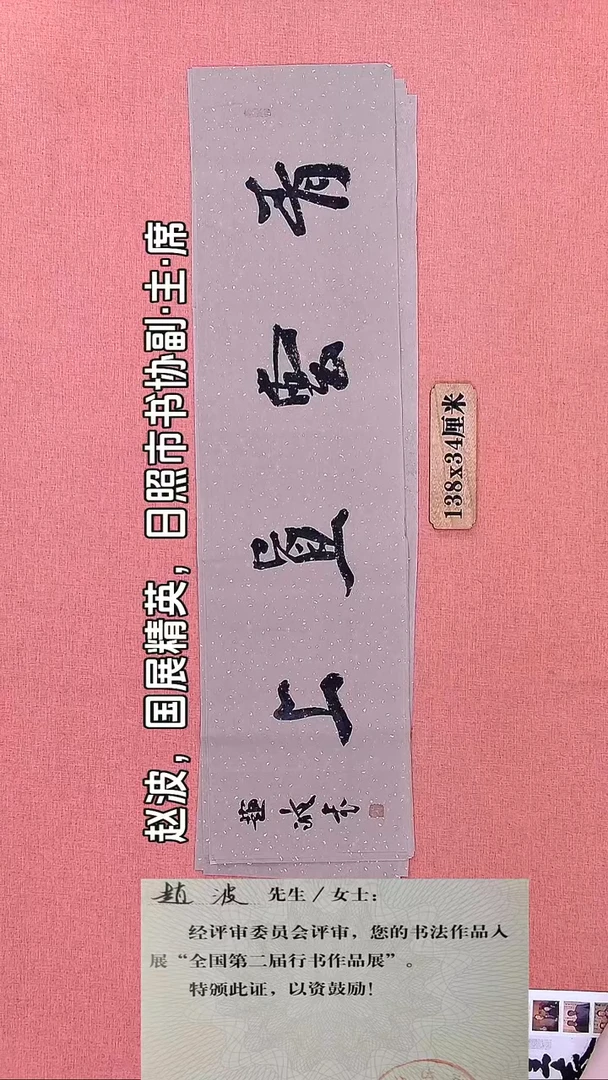 赵波，国展精英，日照市书协副·主·席
青雲直上
趙波书
138x34厘米
趙 波 先生／女士：
经评审委员会评审，您的书法作品入
展“全国第二届行书作品展”。
特颁此证，以资鼓励！